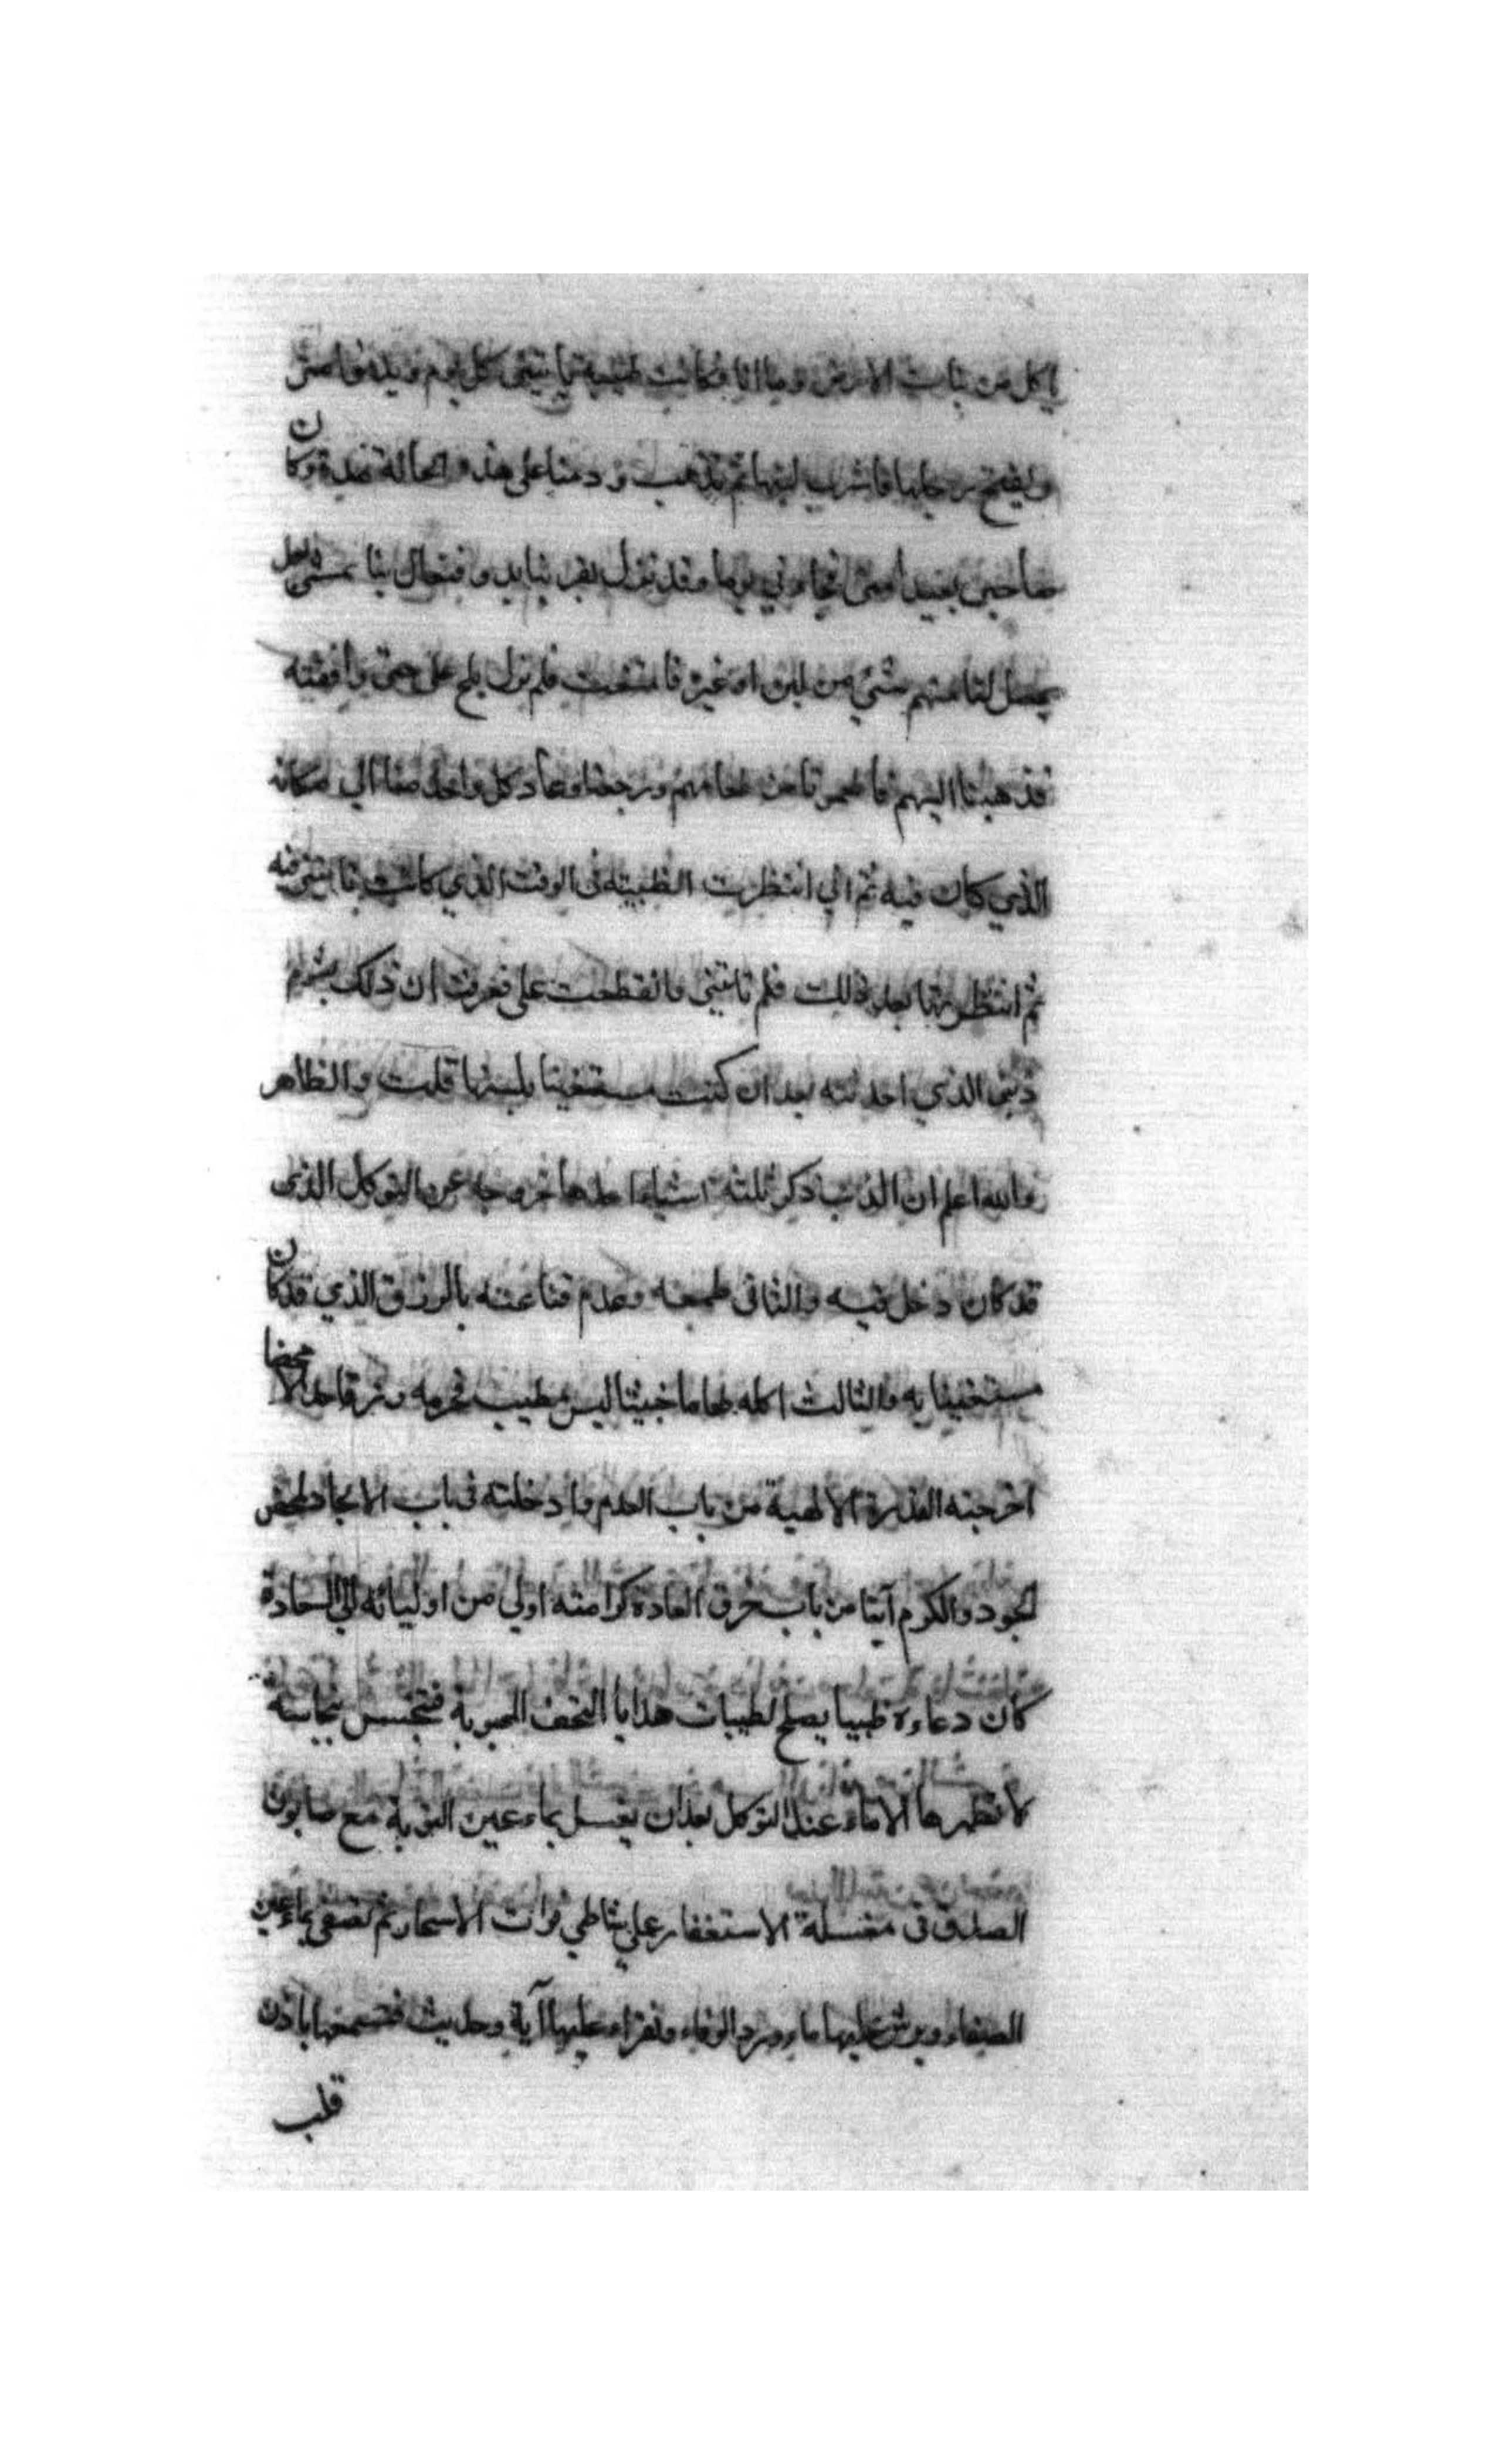 ياكل من نبات الارض واما انا فكانت ظبية تاتيني كل يوم
وتفتح رجليها فاشرب لبنها ثم تذهب ودمنا على هذه الحالة مدة وكان
صاحبي بعيدا مني فجاءني يوما وقد نزل بقربنا بدو فتعال بنا نمشي لعل
يحصل لنا منهم شيء من لبن او غيره فامتنعت فلم يزل يلح علي حتى وافقته
فذهبنا اليهم فاطعمونا من طعامهم ورجعنا وعاد كل واحد منا الي مكانه
الذي كان فيه ثم اني انتظرت الظبية في الوقت الذي كانت تاتيني فيه
ثم انتظرتها بعد ذلك فلم تاتني وانقطعت علي فعرفت ان ذلك بشوم
ذنبي الذي احدثته بعد ان كنت مستغنيا بلبنها قلت والظاهر
والله اعلم ان الذنب ذكر ثلثة اشياء احدها خروجه عن التوكل الذي
قد كان دخل فيه والثاني طمعه وعدم قناعته بالرزق الذي قد كان
مستغنيا به والثالث اكله طعاما خبيثا ليس بطيب فحرمه رزقا حلالا محضا
اخرجته القدرة الالهية من باب العدم وادخلته في باب الايجاد لمحض
الجود والكرم آتيا من باب خرق العادة كرامته اولي من اوليائه
كان دعاءه ظبيا يصلح لطيبات هدايا التحف
لا تطهرها الا ماء عند التوكل بعد ان يغسل بماء عين التوبة مع صابون
الصدق في مغسلة الاستغفار علي شاطي فرات الاسحار ثم تصفى بماء عين
الصفاء ويرش عليها ماء ورد الوفاء وتقراء عليها آية وحديث فتسمعها باذن
قلب